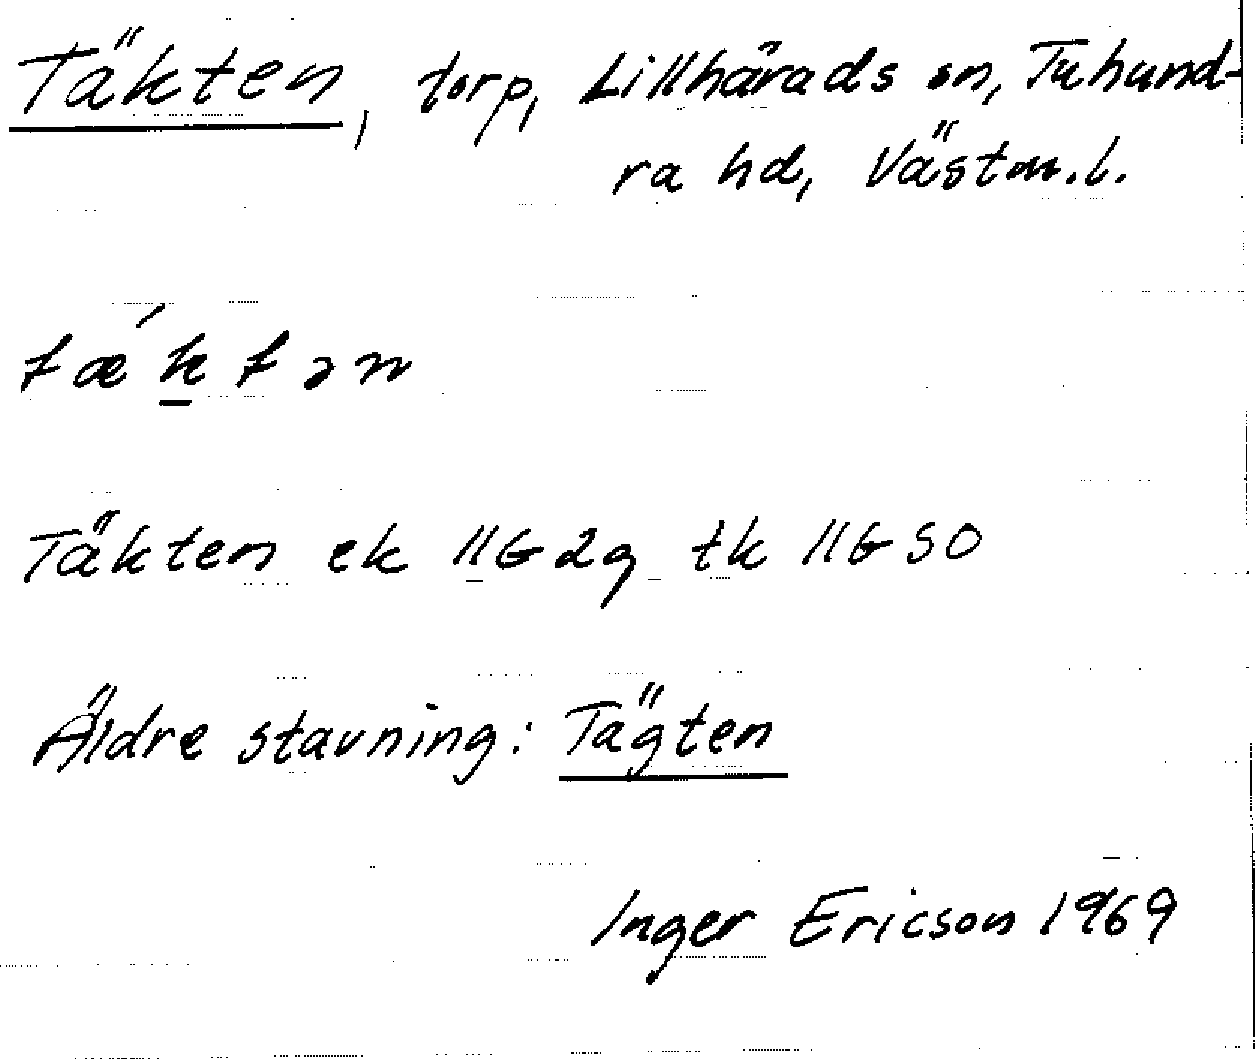 Täkten, torp, Lillhärads sn, Tuhund-
ra hd, Västm.l.
tæ´ktən
Täkten ek 11G2g tk 11G SO
Äldre stavning: Tägten
Inger Ericson 1969